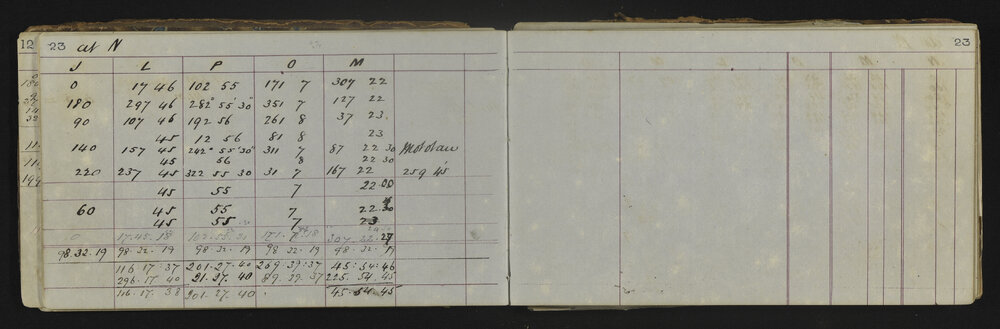 23 at N
J L P O M
0 17 46 102 55 171 7 307 22
180 297 46 282° 55' 30" 351 7 127 22
90 107 46 192 56 261 8 37 23
45 12 56 81 8 23
140 157 45 242° 55' 30" 311 7 87 22 30
45 56 8 22 30
220 237 45 322 55 30 31 7 167 22 259 45
45 55 7 22.00
60 45 55 7 22.30
45 55 7 23
0 17.45.18 102.55. 171.7. 307.22.27
98.32.19 98.32.19 98.32.19 98.32.19 98.32.19
116.17.37 201.27.40 269.39.37 45.54.46
296.17.40 21.27.40 89.39.37 225.54.45
116.17.38 201.27.40 45.54.45
23
12